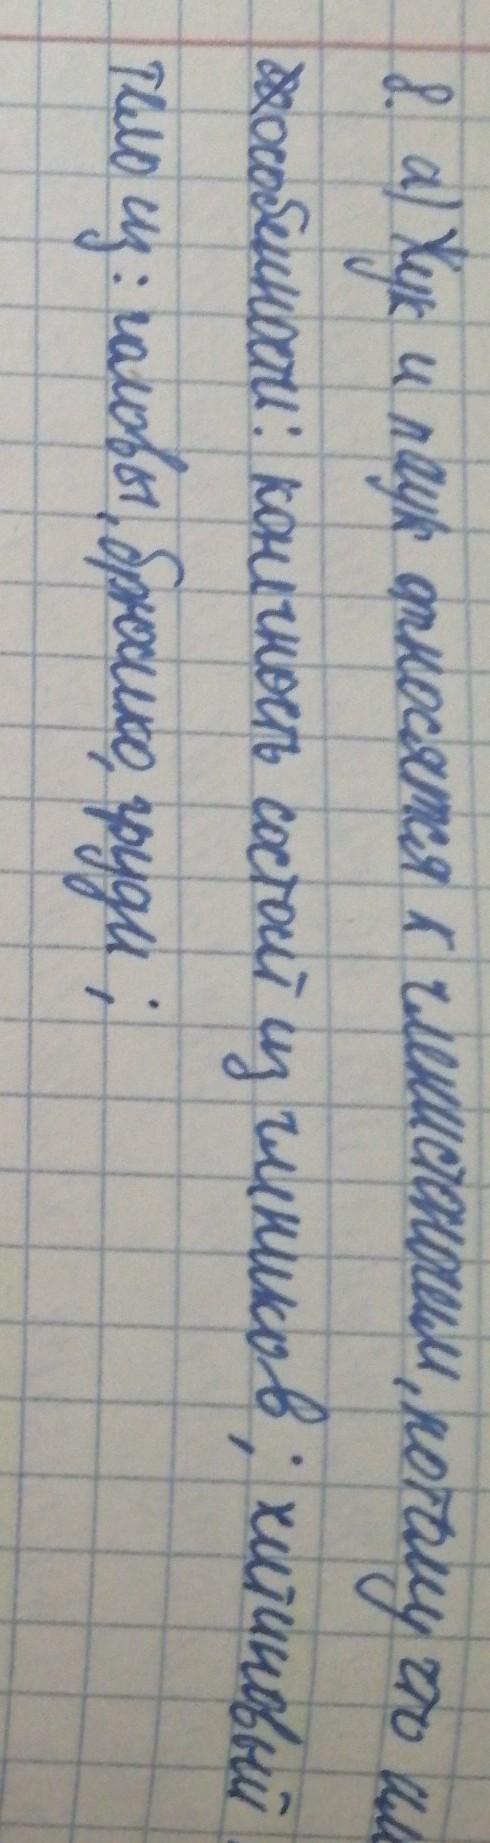 8. а) Жук и паук относятся к членистоногим, потому что
особенности: конечность состоит из члеников; хитиновый
Тело из: головы, брюшко, груди;